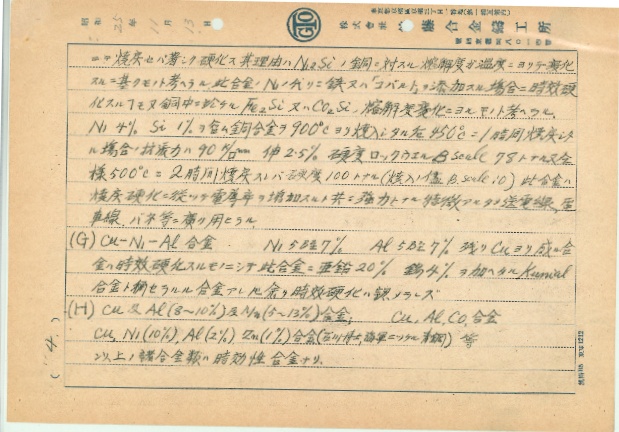 昭和 25年 11月 13日
株式会社 藤合金鋳工所
ニテ焼戻セバ著シク硬化ス 其理由ハ Ni2Si ノ銅ニ対スル溶解度ガ温度ニヨリテ変化
スルニ基クモノト考ヘラル 此合金ノNiノ代リニ鉄又ハ「コバルト」ヲ添加スル場合ニ時効硬
化スルコトモ又銅中ニ於ケル Fe2Si 又ハ CO2Si ノ溶解度変化ニヨルモノト考ヘラル。
Ni 4% Si 1%ヲ含ム銅合金ヲ900°Cヨリ焼入シタル后450°Cニ1時間焼戻シタ
ル場合ハ抗張力ハ90 伸25% 硬度ロックウエルB scale 78トナル又仝
様500°Cニ2時間焼戻スレバ硬度100トナル(焼入ノ儘B.scale 10) 此合金ハ
焼戻硬化ニ従ッテ電導率ヲ増加スルト共ニ強力トナル特徴アルタメ送電線、電
車線、バネ等ニ賞用セラル
(G) Cu-Ni-Al 合金 Ni 5乃至7% Al 5乃至7% 残リCuヨリ成ル合
金ハ時效硬化スルモノニシテ此合金ニ亜鉛20% 錫4%ヲ加ヘタルKunial
合金ト称セラルル合金アレ共余リ時效硬化ハ顕ノラレズ
(H) Cu & Al(8~10%) & Ni(5~13%)合金, Cu, Al, Co, 合金
Cu, Ni(10%), Al(2%), Zn(1%)合金(石川博士, 海軍ニツケル青銅) 等
以上ノ諸合金類ハ時効性合金ナリ.
(4)